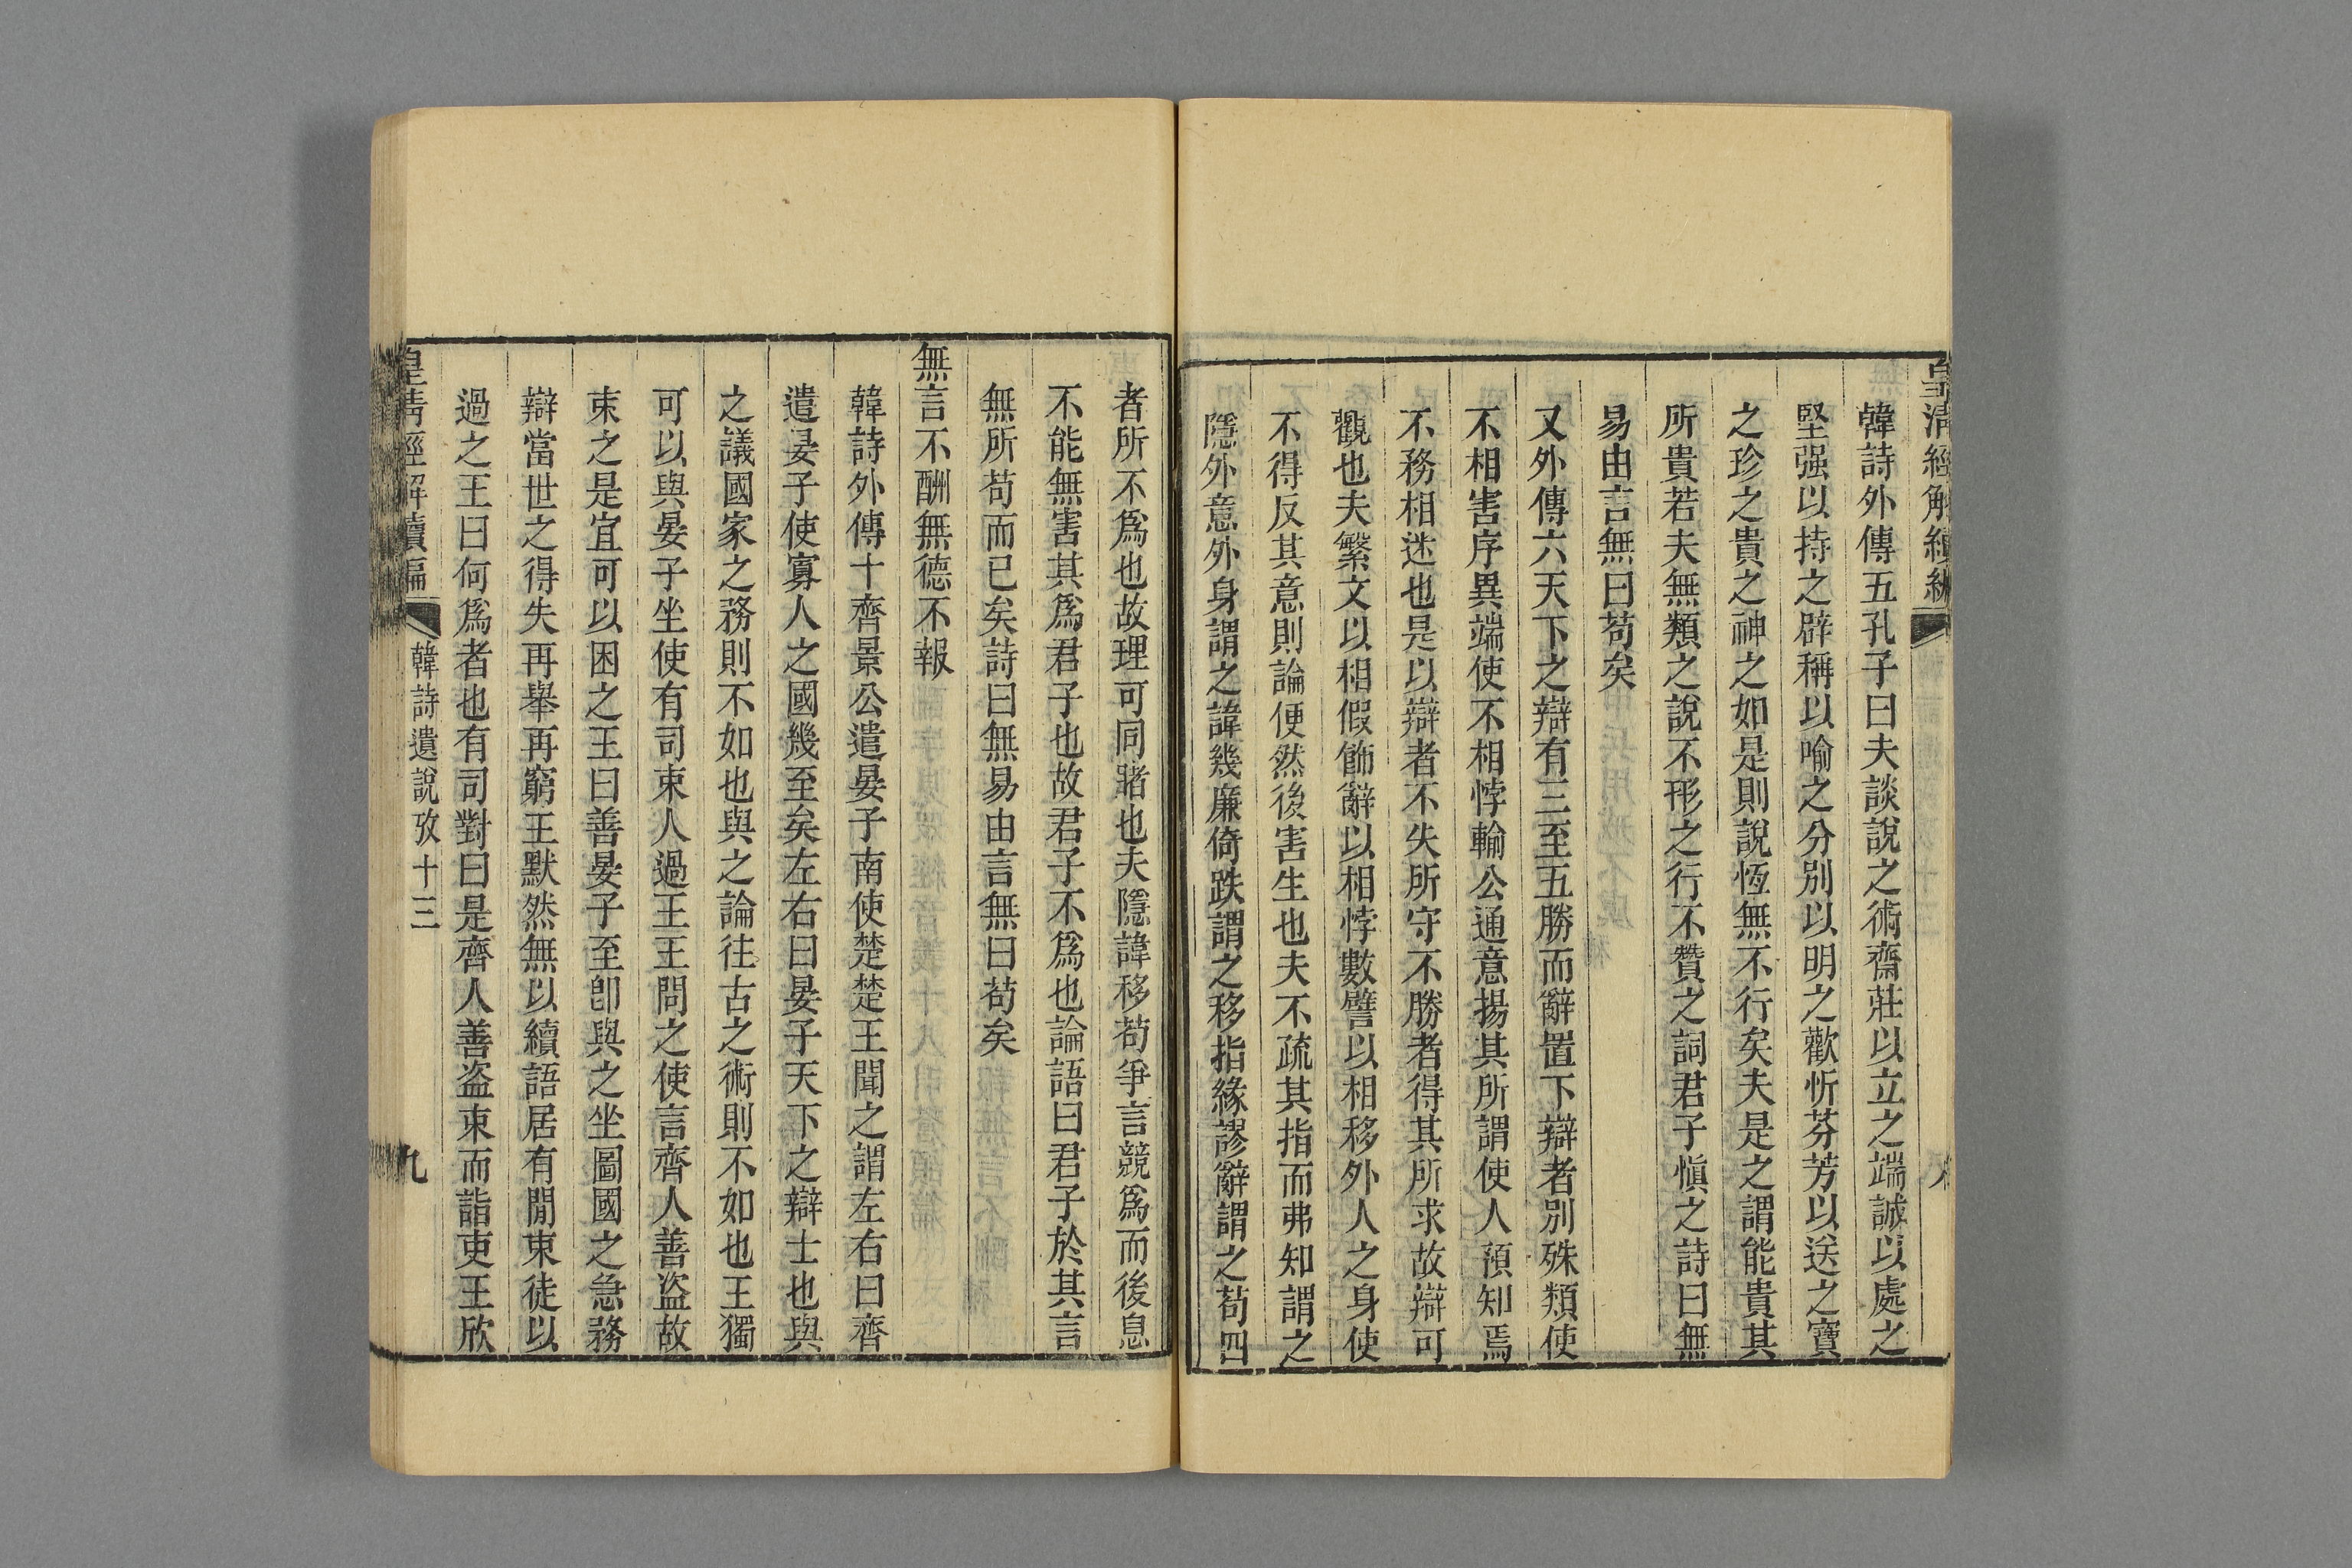 皇清經解續編
韓詩外傳五孔子曰夫談說之術齋莊以立之端誠以處之
堅强以持之辟稱以喻之分別以明之歡忻芬芳以送之寶
之珍之貴之神之如是則說恆無不行矣夫是之謂能貴其
所貴若夫無類之說不形之行不贊之詞君子愼之詩曰無
易由言無曰苟矣
又外傳六天下之辯有三至五勝而辭置下辯者別殊類使
不相害序異端使不相悖輸公通意揚其所謂使人預知焉
不務相迷也是以辯者不失所守不勝者得其所求故辯可
觀也夫繁文以相假飾辭以相悖數譬以相移外人之身使
不得反其意則論便然後害生也夫不疏其指而弗知謂之
隱外意外身謂之諱幾廉倚跌謂之移指緣謬辭謂之苟四
者所不爲也故理可同睹也夫隱諱移苟爭言競爲而後息
不能無害其爲君子也故君子不爲也論語曰君子於其言
無所苟而已矣詩曰無易由言無曰苟矣
無言不酬無德不報
韓詩外傳十齊景公遣晏子南使楚楚王聞之謂左右曰齊
遣晏子使寡人之國幾至矣左右曰晏子天下之辯士也與
之議國家之務則不如也與之論往古之術則不如也王獨
可以與晏子坐使有司束人過王王問之使言齊人善盜故
束之是宜可以困之王曰善晏子至卽與之坐圖國之急務
辯當世之得失再舉再窮王默然無以續語居有閒束徒以
過之王曰何爲者也有司對曰是齊人善盜束而詣吏王欣
皇清經解續編 韓詩遺說攷十三 九